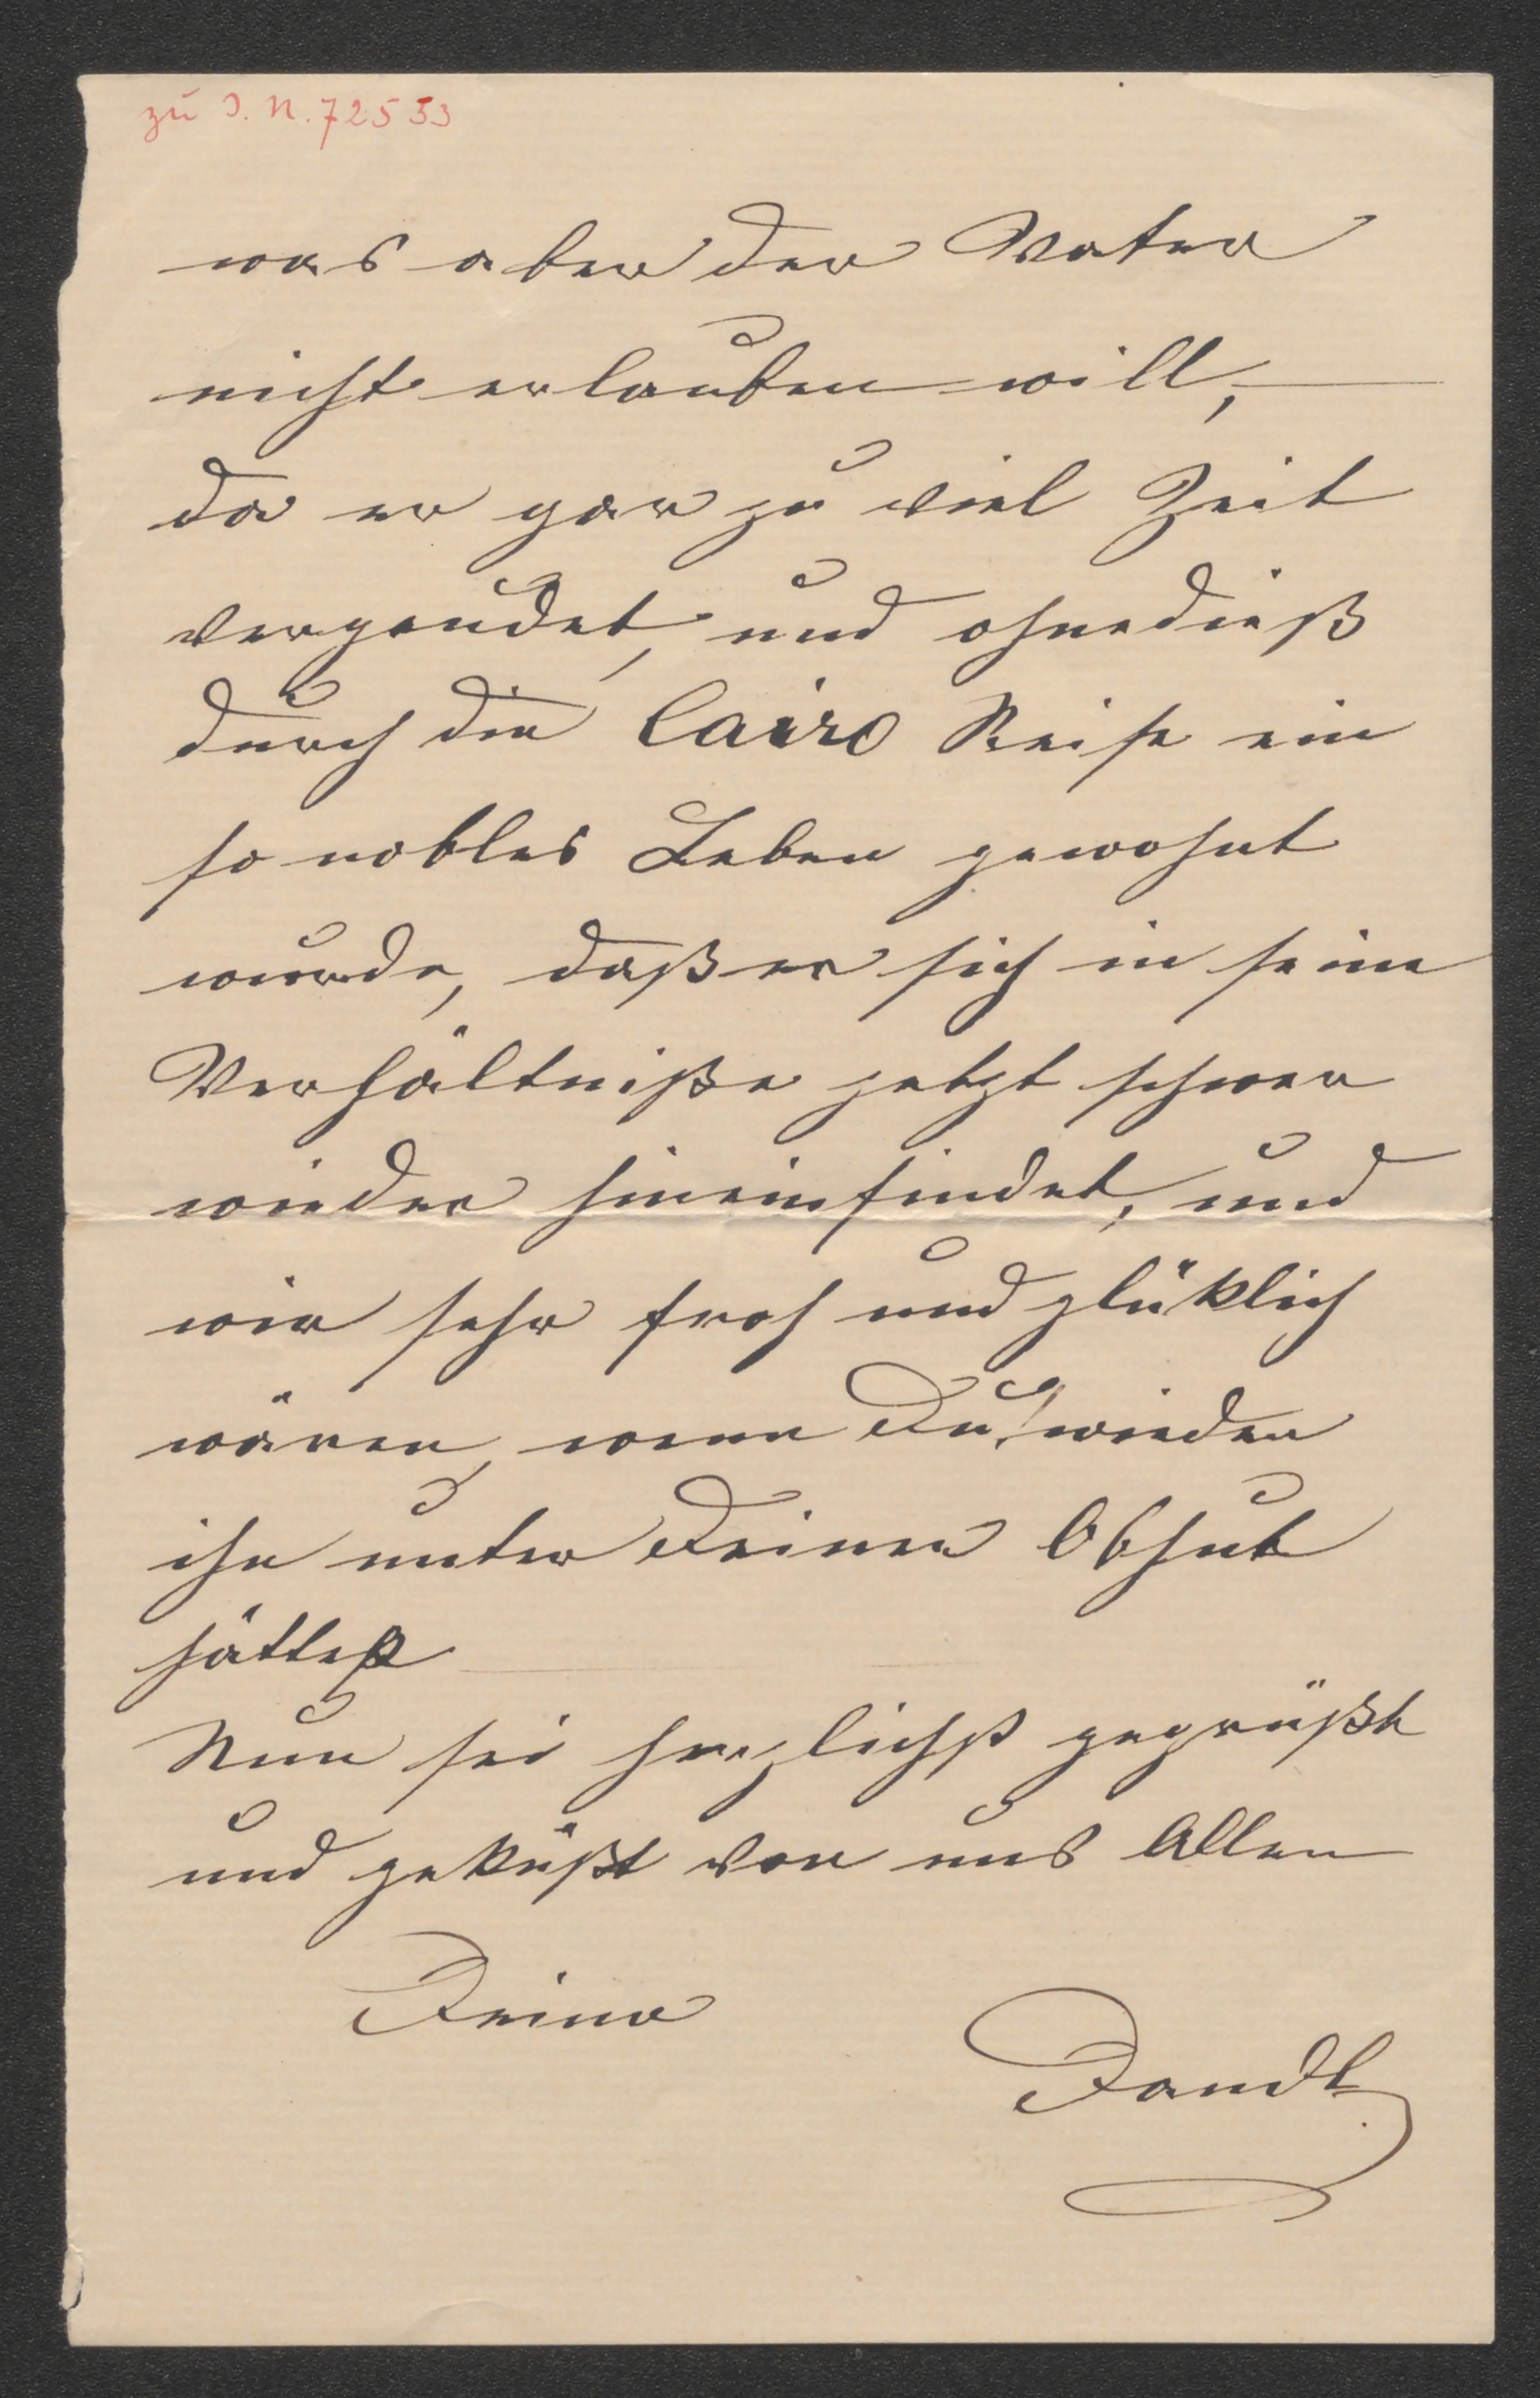 zu I. N. 72553
was aber der Vater
nicht erlauben will,
da er gar zu viel Zeit
vergeudet, und ohnedieß
durch die Cairo Reise ein
so nobles Leben gewohnt
wurde, daß er sich in seine
Verhältniße jetzt schwer
wieder hineinfindet, und
wir sehr froh und glüklich
wären, wenn Du wieder
ihn unter Deiner Obhut
hättest
Nun sei herzlichst gegrüßt
und geküßt von uns Allen
Deine
Dandl